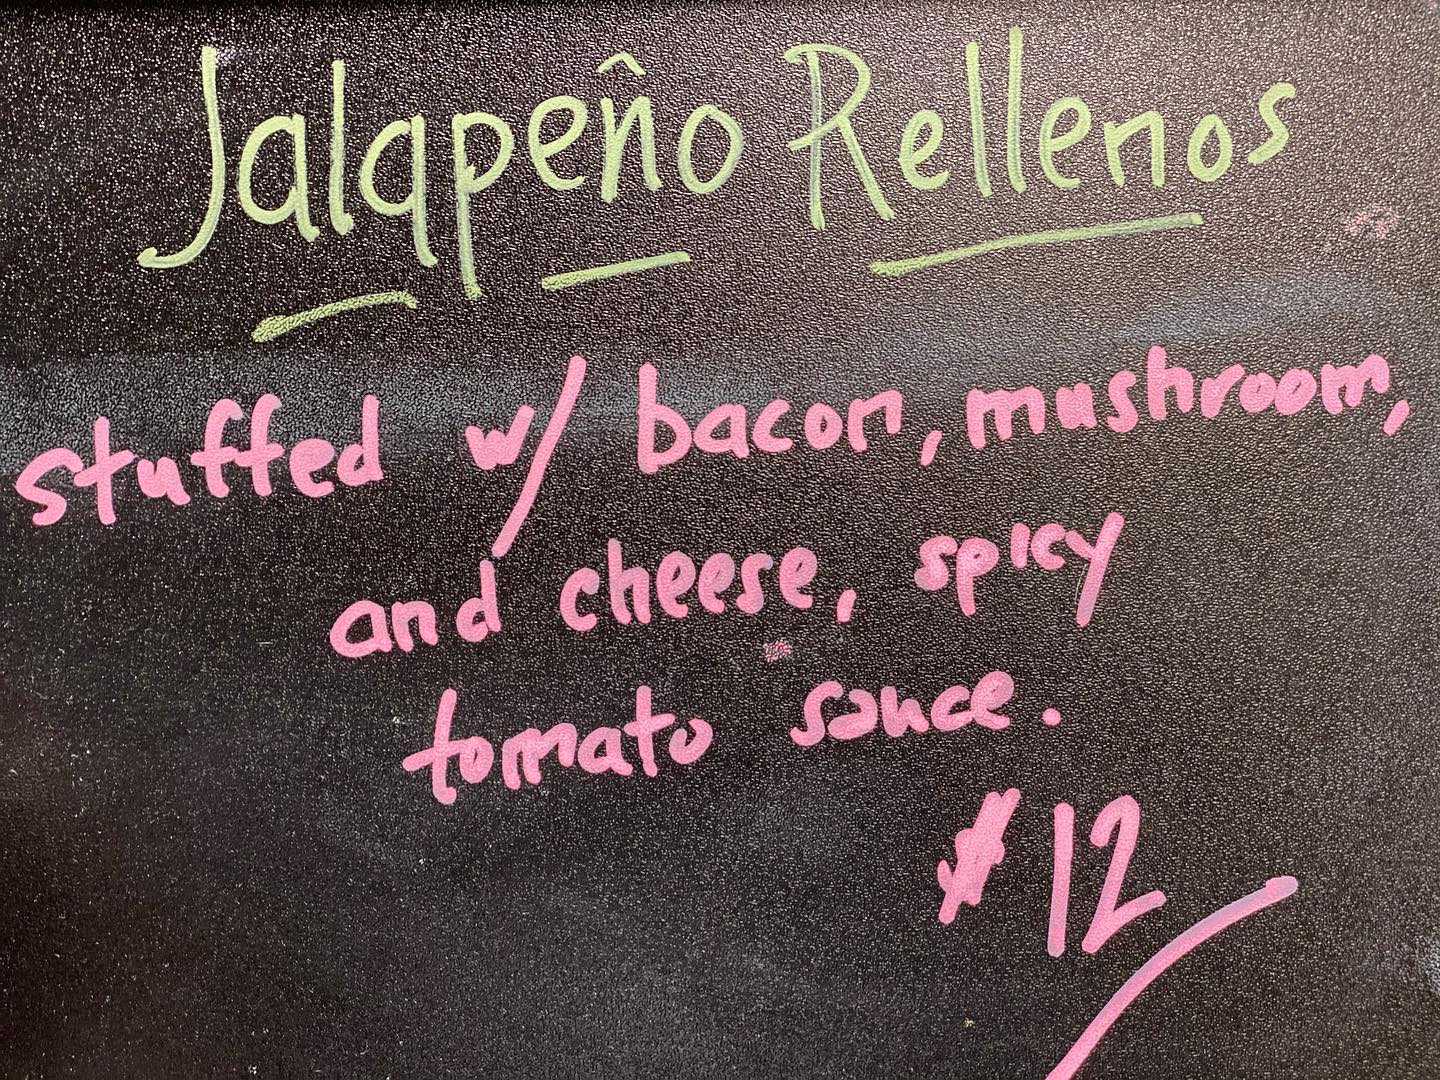 Jalapeño Rellenos
stuffed w/ bacon, mushroom,
and cheese, spicy
tomato sauce.
$12